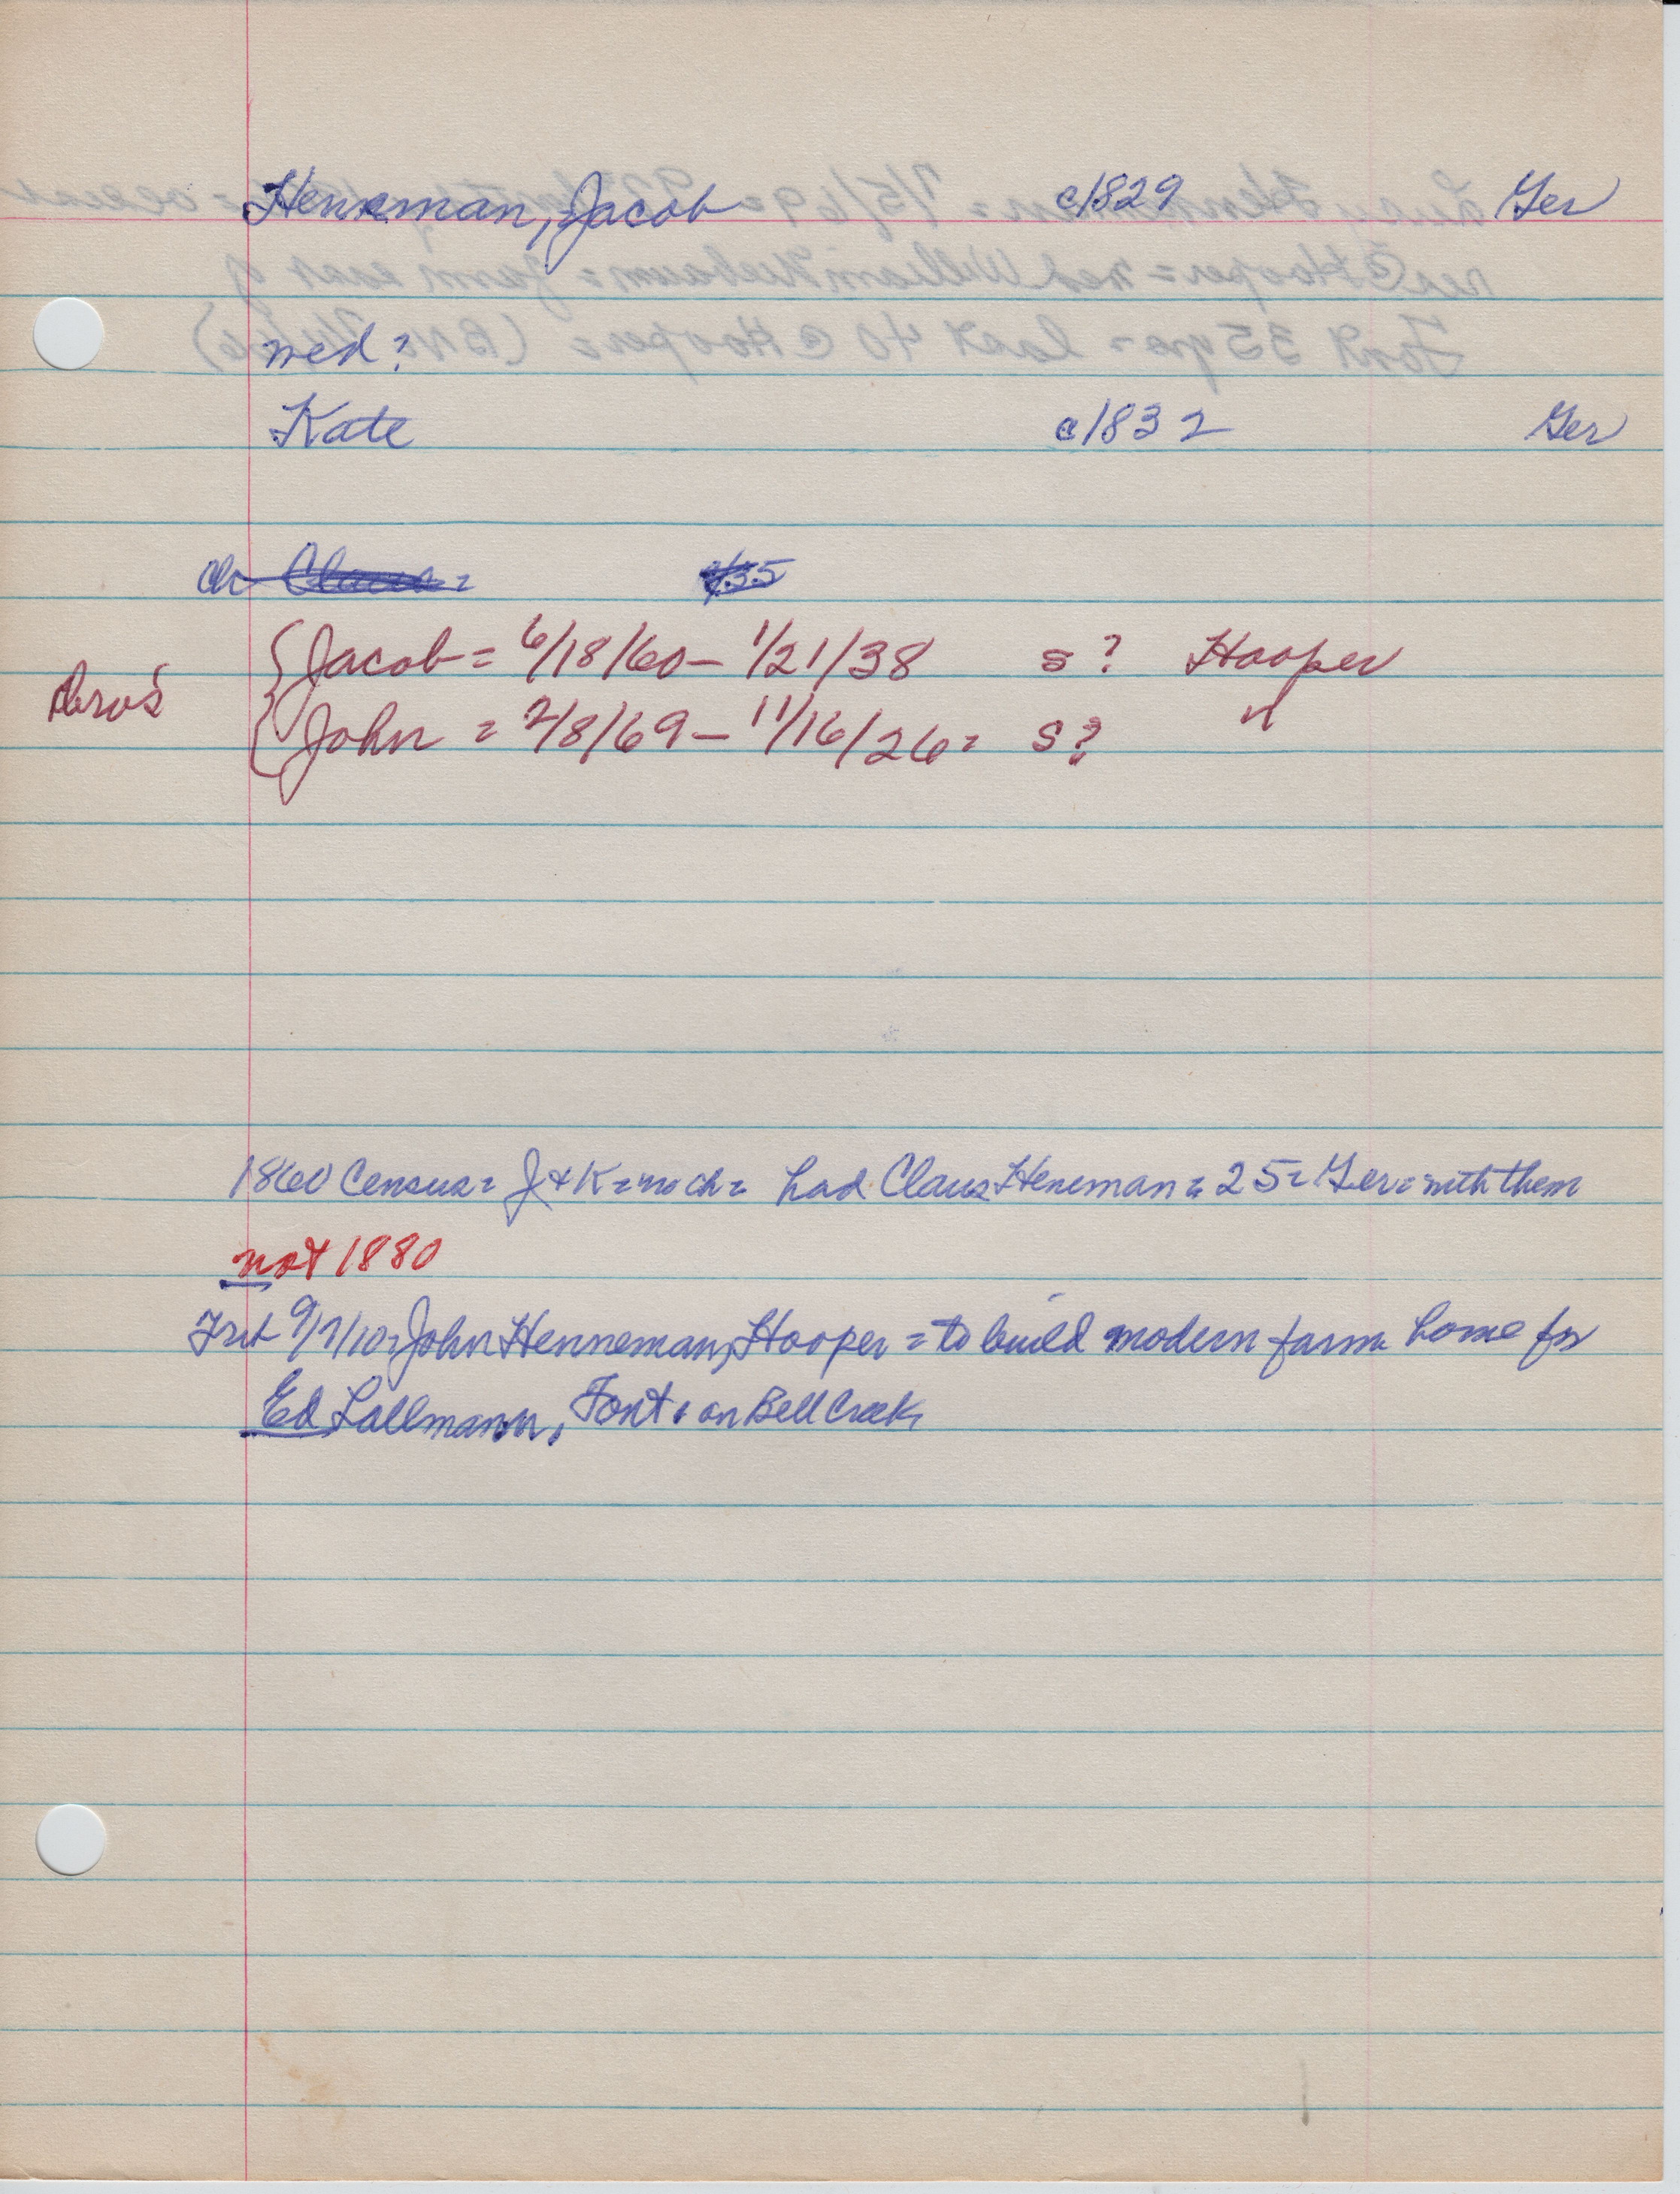 Henneman, Jacob c1829 Ger
wed?
Kate c1832 Ger
ch Claus =
{ Jacob = 6/18/60 – 1/21/38 s? Hooper
Bros
{ John = 2/8/69 – 11/16/26 = s? "
1860 Census = J & K = no ch = had Claus Heneman = 25 = Ger = with them
not 1880
9/7/10 = John Henneman, Hooper = to build modern farm home for
Ed Lallmann, Font. on Bell Creek